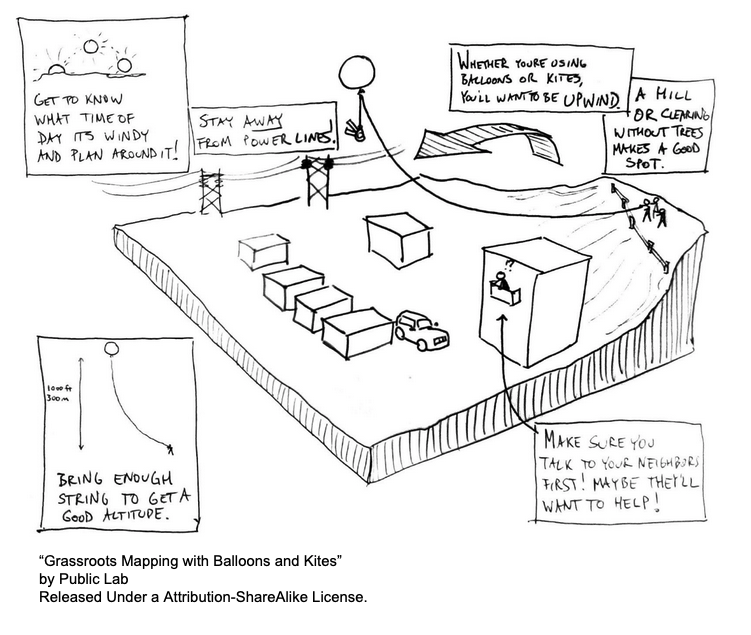 GET TO KNOW
WHAT TIME OF
DAY ITS WINDY
AND PLAN AROUND IT!
STAY AWAY
FROM POWER LINES.
WHETHER YOURE USING
BALLOONS OR KITES,
YOU'LL WANT TO BE UPWIND.
A HILL
OR CLEARING
WITHOUT TREES
MAKES A GOOD
SPOT.
?
1000 ft
300 m
BRING ENOUGH
STRING TO GET A
GOOD ALTITUDE.
MAKE SURE YOU
TALK TO YOUR NEIGHBORS
FIRST! MAYBE THEY'LL
WANT TO HELP!
“Grassroots Mapping with Balloons and Kites”
by Public Lab
Released Under a Attribution-ShareAlike License.